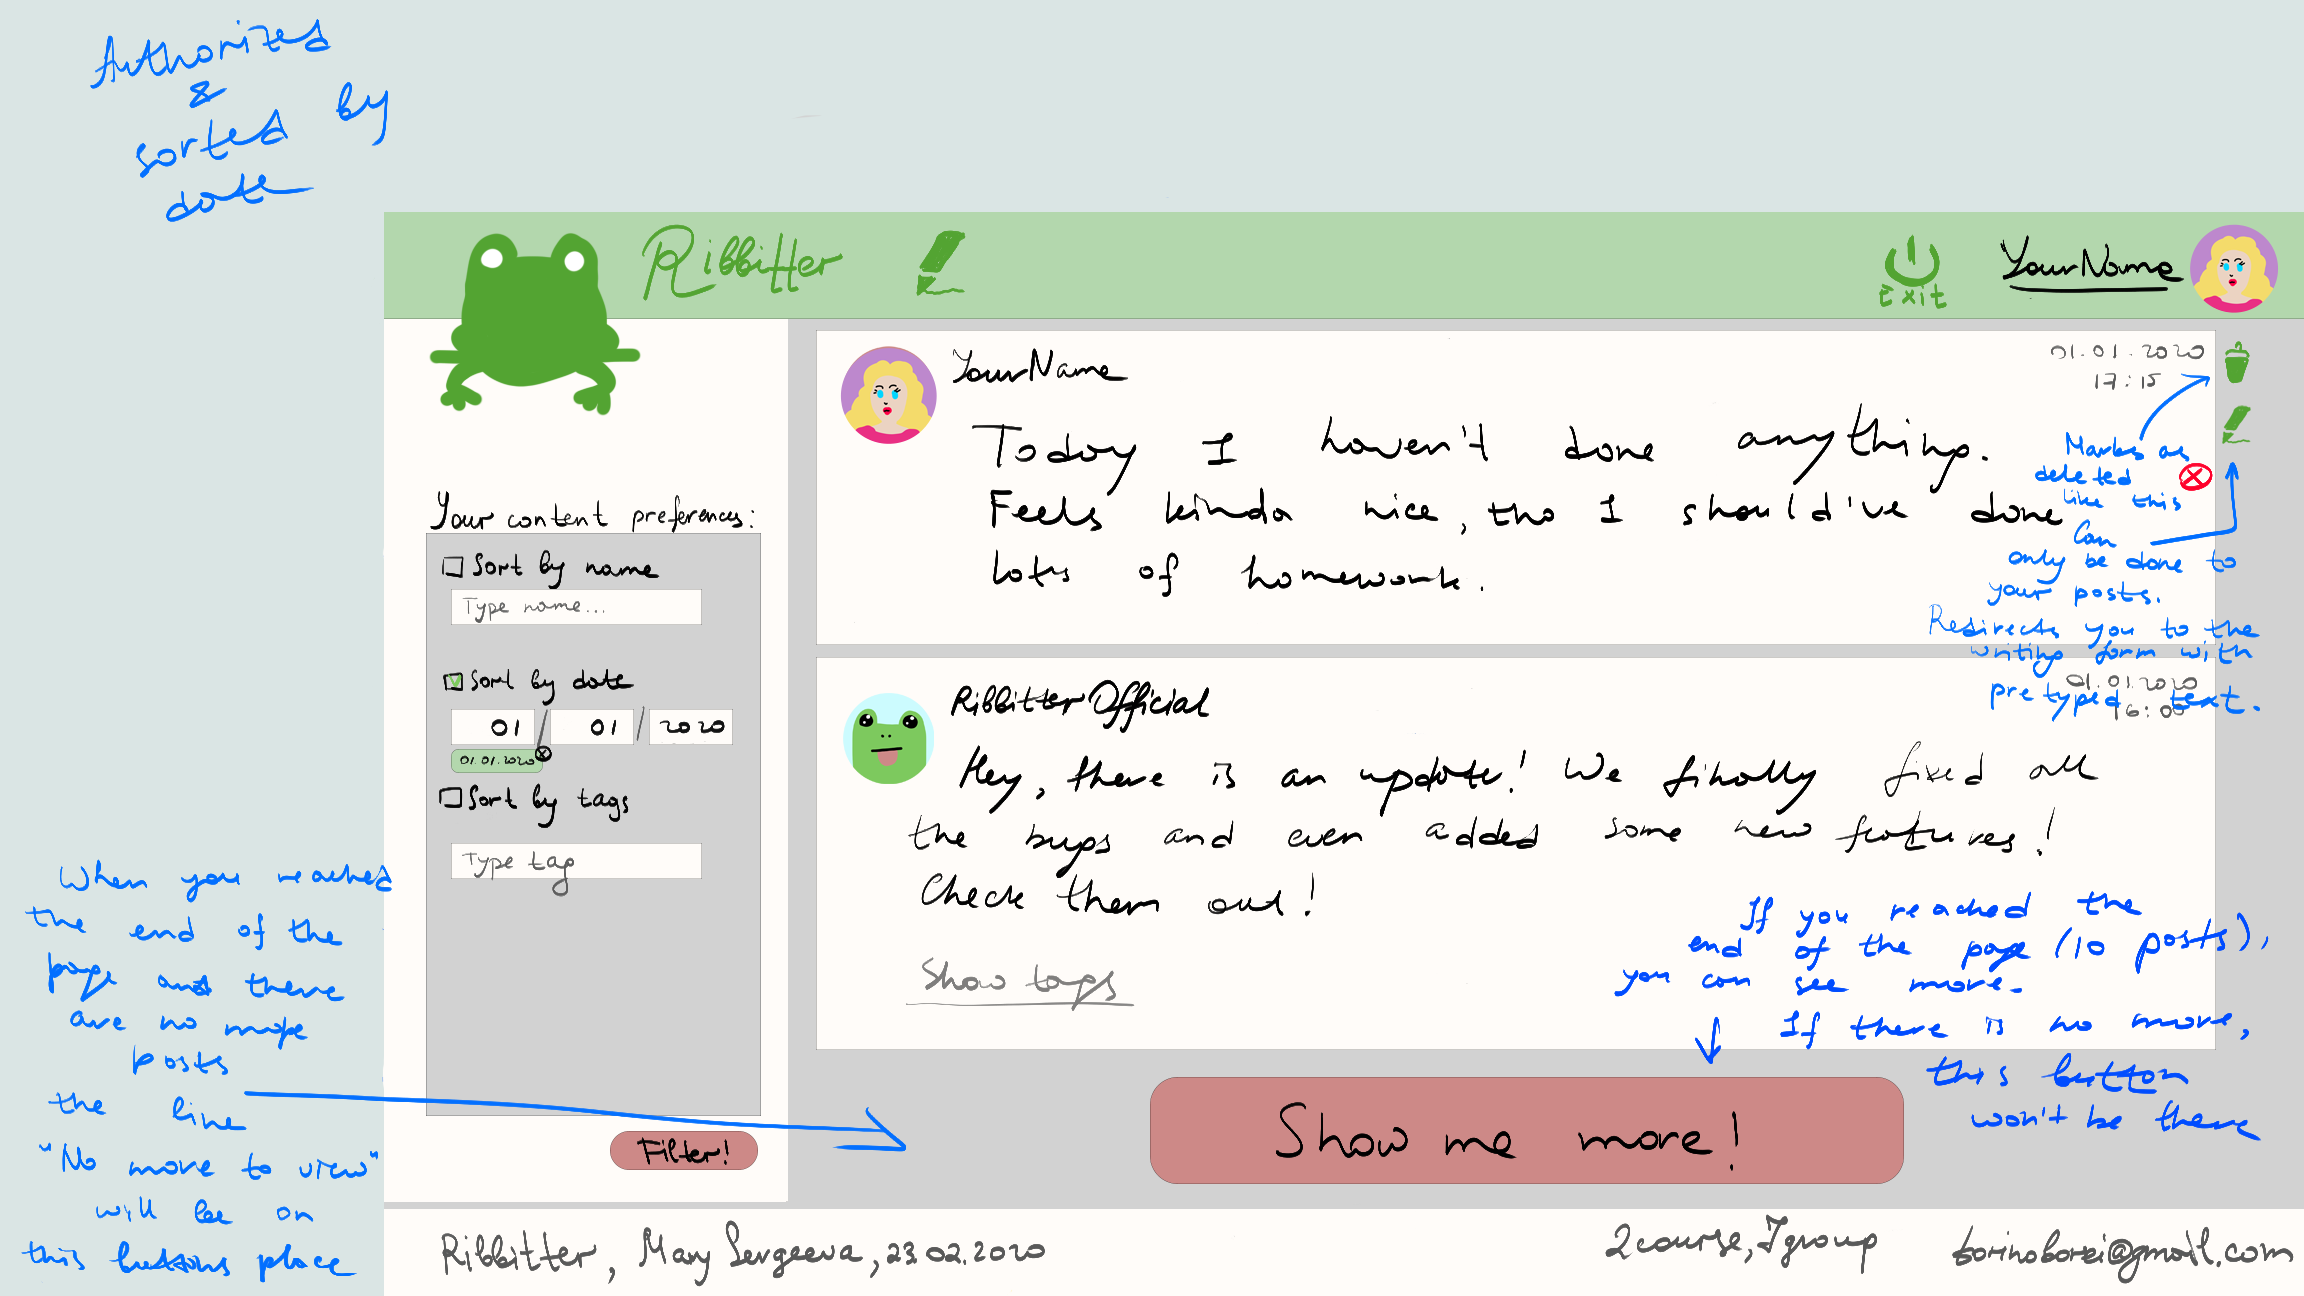 Authorized
&
sorted by
date
Ribbitter
Exit
YourName
Your content preferences:
Sort by name
Type name...
Sort by date
01 / 01 / 2020
01.01.2020
Sort by tags
Type tag
Filter!
YourName
01.01.2020
17:15
Today I haven't done anything.
Feels kinda nice, tho I should've done
lots of homework.
Marks as
deleted
like this
Can
only be done to
your posts.
Redirects you to the
writing form with
pretyped text.
Ribbitter Official
01.01.2020
16:00
Hey, there is an update! We finally fixed all
the bugs and even added some new features!
Check them out!
Show tags
If you reached the
end of the page (10 posts),
you can see more.
If there is no more,
this button
won't be there
Show me more!
When you reached
the end of the
page and there
are no more
posts
the line
"No more to view"
will be on
this buttons place
Ribbitter, Mary Sergeeva, 23.02.2020
2course, 7group
@gmail.com